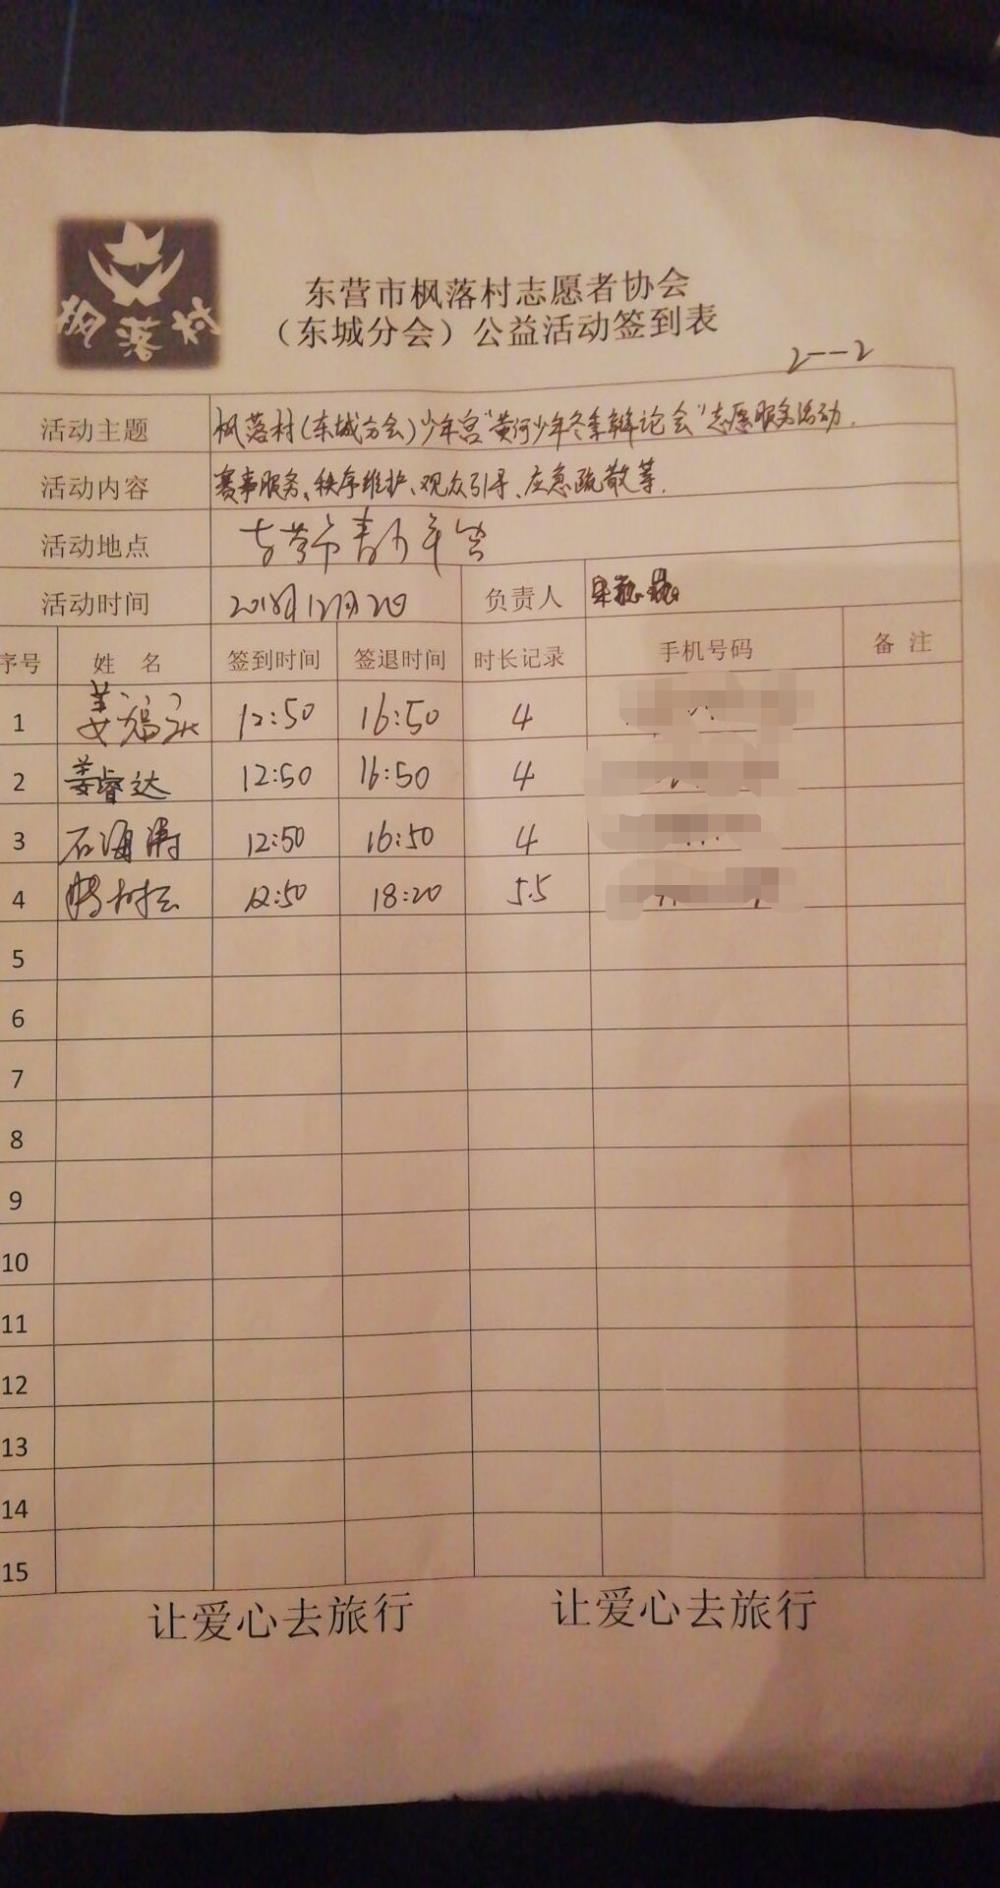 枫落村
东营市枫落村志愿者协会
（东城分会）公益活动签到表
2---2
活动主题 枫落村(东城分会)少年宫"黄河少年冬季辩论会"志愿服务活动.
活动内容 赛事服务、秩序维护、观众引导、应急疏散等.
活动地点 东营市青少年宫
活动时间 2018年12月2日 负责人
序号 姓 名 签到时间 签退时间 时长记录 手机号码 备 注
1 12:50 16:50 4
2 姜睿达 12:50 16:50 4
3 石海涛 12:50 16:50 4
4 12:50 18:20 5.5
5
6
7
8
9
10
11
12
13
14
15
让爱心去旅行 让爱心去旅行